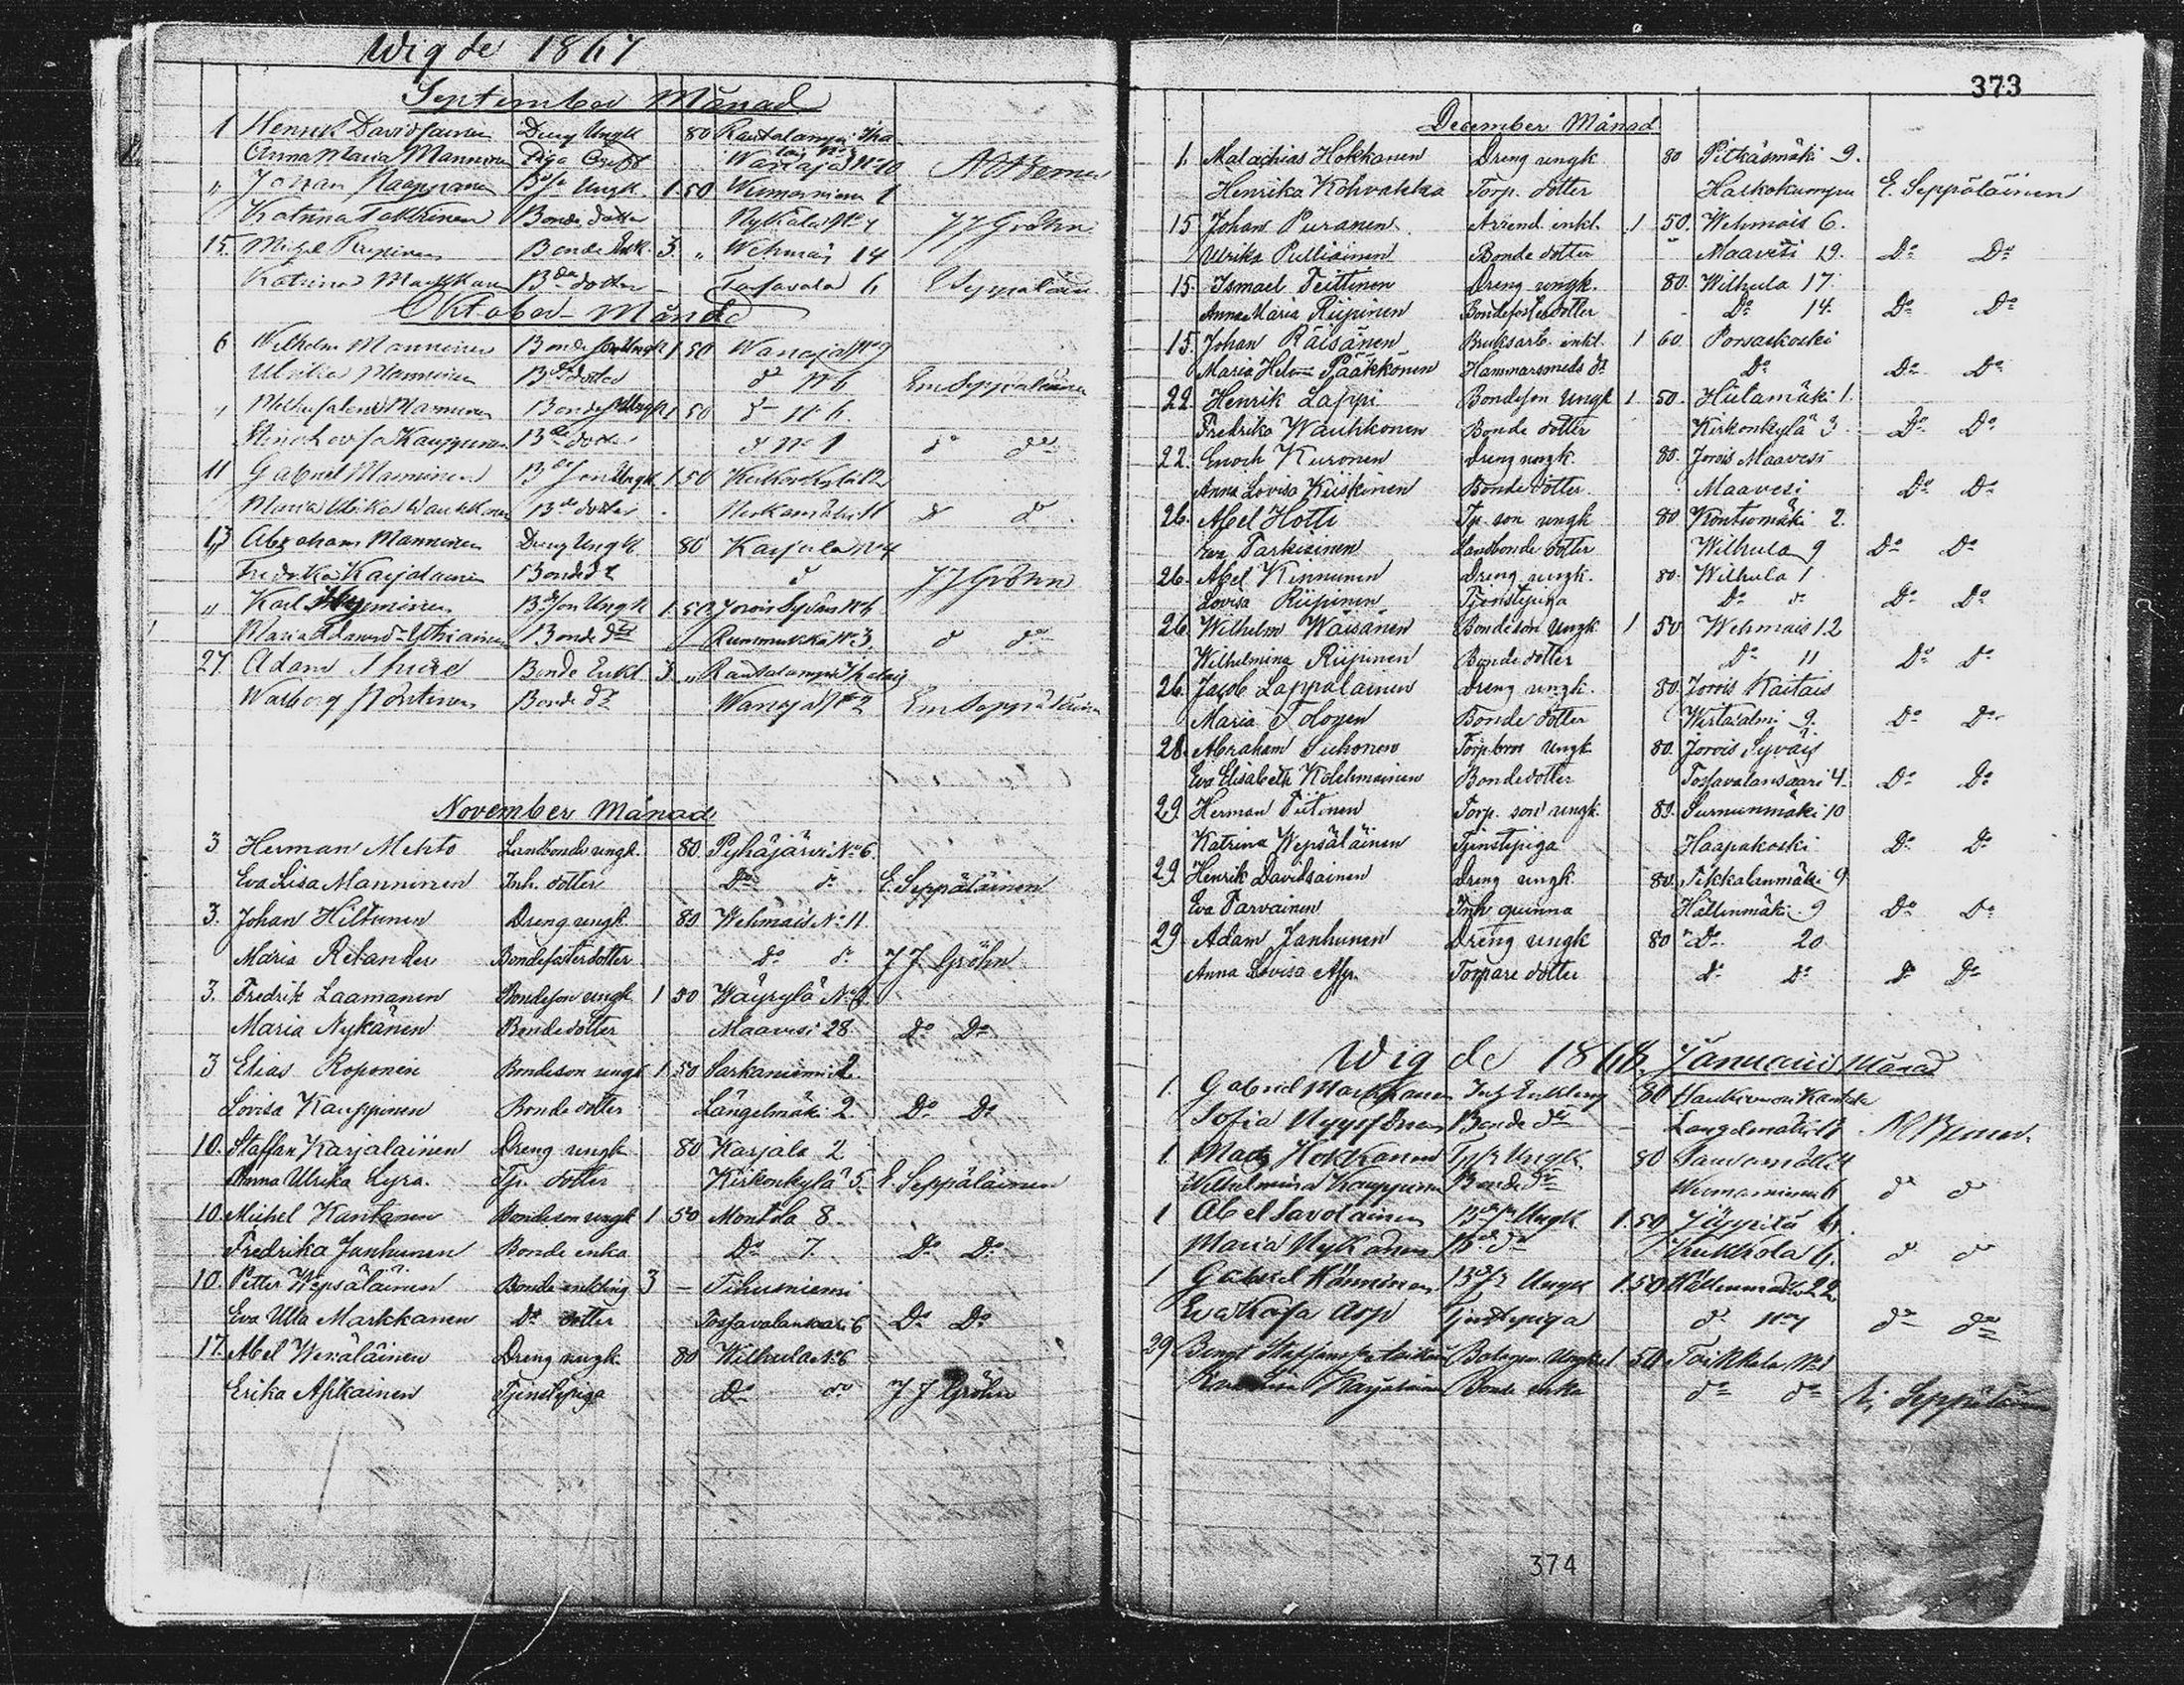 Wigde 1867
September Månad
1 Henrik Davidsainen Dreng Ungk 80 Rautalampi
Anna Maria Manninen Piga Wanaja No 10
„ Johan Kauppanen Ungk. 1 50 1
Katrina Bonde dotter J J Gröhn
15. Bonde Enk. 3 „ Wehmais 14
Katrina Markkanen Bde dotter 6 E Seppäläinen
Oktober Månad
6 Wilhelm Manninen Bonde son Ungk 1 50 Wanaja No 9
Ulrika Manninen Bde dotter do No 6 Em Seppäläinen
„ Manninen Bonde Ungk 1 50 do No 6
Kauppinen Bde dotter do No 1 do do
11 Gabriel Manninen Bde son Ungk 1 50 Kirkonkylä 12
Maria Ulrika Waukkonen Bde dotter do do
13 Abraham Manninen Dreng Ungk 80 Karjala No 4
Fredrika Karjalainen Bonde dr do J J Gröhn
„ Karl Bdeson Ungk 1 50 Jorois Syväis No 6
Maria Bonde dr No 3 do do
27. Adam Bonde Enkl 3 „ Rautalampi
Walborg Bonde dr Wanaja No 2 Em Seppäläinen
November Månad
3 Herman Mehto Landbonde ungk. 80. Pyhäjärvi No 6.
Eva Lisa Manninen Inh. dotter Do do E. Seppäläinen
3. Johan Hiltunen Dreng ungk 80 Wehmais No 11
Maria Relander Bondefosterdotter do do J J Gröhn
3. Fredrik Laamanen Bondeson ungk 1 50 Wäyrylä No
Maria Nykänen Bondedotter Maavesi 28 do Do
3 Elias Roponen Bondeson ungk 1 50 Sarkaniemi 2.
Lovisa Kauppinen Bonde dotter Längelmäki 2 Do Do
10. Staffan Karjalainen Dreng ungk 80 Karjala 2
Anna Ulrika Lyra. Tjr. dotter Kirkonkylä 5. E Seppäläinen
10. Michel Kantanen Bondeson ungk 1 50 Monttila 8
Fredrika Janhunen Bonde enka Do 7. Do Do
10. Petter Wepsäläinen Bonde enkling 3 – Tihusniemi
Eva Ulla Markkanen Do dotter Torsavalansaari 6 Do Do
17. Abel Wenäläinen Dreng ungk 80 Wilhula No 6
Erika Asikainen Tjenstepiga Do do J J Gröhn
373
December Månad
1. Malachias Hokkanen Dreng ungk 80 Pitkäsmäki 9.
Henrika Kohvakka Torp. dotter Halkokumpu E. Seppäläinen
15 Johan Puranen Arrend. enkl. 1 50. Wehmais 6.
Ulrika Pulliainen Bonde dotter – Maavesi 19. Do Do
15. Ismael Teittinen Dreng ungk. 80. Wilhula 17.
Anna Maria Riipinen Bondefosterdotter Do 14. Do Do
15. Johan Räisänen Bruksarb. enkl. 1 60 Porsaskoski
Maria Helena Pääkkönen Hammarsmeds dr Do Do Do
22 Henrik Lappi Bondeson ungk 1 50. Hiilamäki 1.
Fredrika Waukkonen Bonde dotter Kirkonkylä 3 Do Do
22. Enoch Kuronen Dreng ungk. 80. Jorois Maavesi
Anna Lovisa Kiiskinen Bonde dotter Maavesi Do Do
26. Abel Hotti Tp. son ungk 80 Kontuomäki 2.
Eva Tarkiainen Landbonde dotter Wilhula 9 Do Do
26. Abel Kinnunen Dreng ungk. 80. Wilhula 1
Lovisa Riipinen Tjenstepiga Do do Do Do
26 Wilhelm Waisänen Bondeson Ungk 1 50 Wehmais 12
Wilhelmina Riipinen Bonde dotter Do 11 Do Do
26. Jacob Lappalainen Dreng ungk. 80. Jorois Kaitais
Maria Tolonen Bonde dotter Wirtasalmi 9. Do Do
28. Abraham Suhonen Torp.bror ungk 80. Jorois Syväis
Eva Elisabeth Kolehmainen Bondedotter Torsavalansaari 4. Do Do
29 Herman Tiitinen Torp. son ungk. 80. Surnunmäki 10
Katrina Wepsäläinen Tjenstepiga Haapakoski Do Do
29 Henrik Davidsainen Dreng ungk. 80. Tikkalanmäki 9
Eva Tarvainen Inh. quinna Hällinmäki 9 Do Do
29 Adam Janhunen Dreng ungk 80 Do 20
Anna Lovisa Asp. Torpare dotter do Do Do Do
Wigde 1868. Januarii Månad
1. Gabriel Markkanen Inh Enkling 80
Sofia Bonde dr Längelmäki
1. Mats Hokkanen Ungk. 80
Wilhelmina Kauppinen Bonde dr 6 do do
1 Abel Savolainen Ungk 1 50
Maria Nykänen Bde dr do do
1 Gabriel Manninen Ungk 1 50 Hällinmäki 22
Eva Kaisa Asp Tjenstepiga do No 7 do do
29 Bengt Ungk 1 50 Toikkala No 1
Karjalainen Bonde enka do do E. Seppäläinen
374